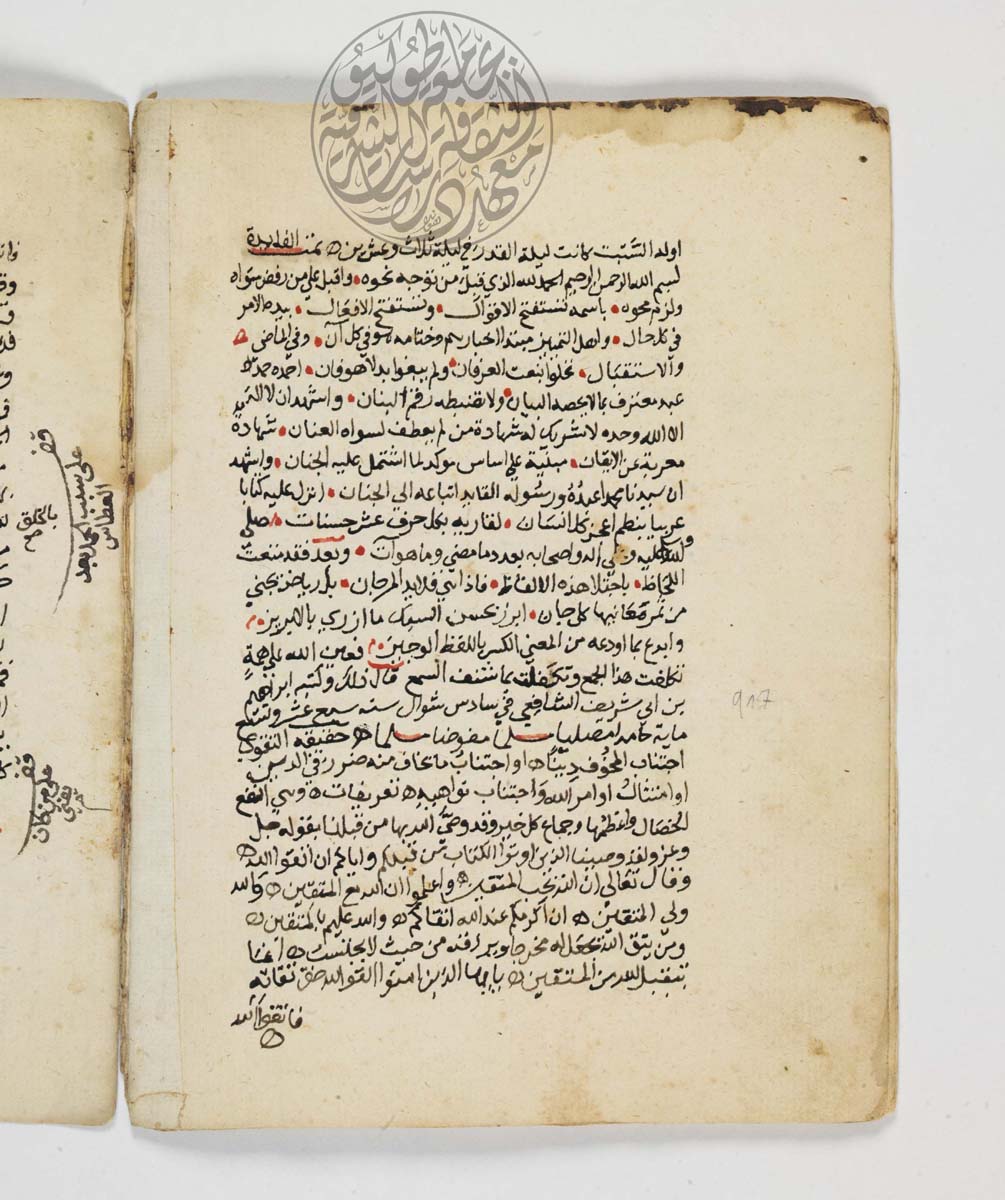 اوله السَّبت كانت ليلة القدر في ليلة ثلاث وعشرين ه تمت الفايدة
بسم الله الرحمن الرحيم الحمد لله الذي قبل من توجه نحوه • واقبل علي من رفض سواه
ولزم محوه • باسمه تستفتح الاقوال • وتستفتح الافعال • بيده الامر
في كل حال • ولاهل التمييز مبتدا اخبارهم وختامه هو في كل آن • وفي الماضي ه
والاستقبال • تحلوا بنعت العرفان • ولم يبغوا بدلا هو فان • احمده حمد
عبد معترف بما لا يحصه البيان • ولا تضبطه رقم البنان • واشهد ان لا اله
الا الله وحده لا شريك له شهادة من لم يعطف لسواه العنان • شهادة
معربة عن الايقان • مبنية علي اساس موكد لما اشتمل عليه الجنان • واشهد
ان سيدنا محمدا عبدهُ ورسوله القايد اتباعه الي الجنان • انزل عليه كتابا
عربيا بنظم اعجز كل انسان • لقاريه بكل حرف عشر حسنات • صلي
الله عليه وعلي اله واصحابه بعدد ما مضي وما هو آت • وبعد فقد متعت
اللحاظ • باجتلا هذه الالفاظ • فاذا هي قلايد المرجان • بل رياض يجني
من ثمر معانيها كل جان • ابرز بحسن السبك ما ازري بالابريز •
وابدع بما اودعه من المعني الكبير باللفظ الوجيز • فعين الله علي همة
تكلفت هذا الجمع وتكفلت بما شنف السمع قال ذلك وكتبه ابراهيم
بن ابي شريف الشافعي في سادس شوال سنه سبع عشر وتسع
ماية حامدا مصليا مسلما مفوضا مسلما ه حقيقه التقوي
اجتناب المخوف دينًا ه او اجتناب ما يخاف منه ضرر في الدين
او امتثال اوامر الله واجتناب نواهيه ه تعريفات ه وهي انفع
الخصال واعظمها وجماع كل خير وقد وصي الله بها من قبلنا بقوله جل
وعز ولقد وصينا الذين اوتوا الكتاب من قبلكم واياكم ان اتقوا الله ه
وقال تعالي ان الله يحب المتقين ه واعلموا ان الله مع المتقين ه والله
ولي المتقين ه ان اكرمكم عند الله اتقاكم ه والله عليم بالمتقين ه
ومن يتق الله يجعل له مخرجا ويرزقه من حيث لا يحتسب ه انما
يتقبل الله من المتقين ه يا ايها الذين امنوا اتقوا الله حق تقاته
فاتقوا الله
917
قف
علي سبب الحمد بعد
العطاس
قف
علي من كان
جامعة طوكيو
معهد دراسات الثقافة الشرقية